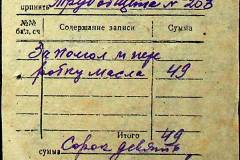 принято Трудобщета № 203
№№ бал. сч. Содержание записи Сумма
За помол и пере
работку масла 49
Итого 49
сумма Сорок девять